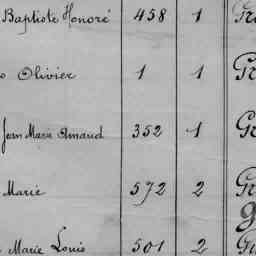 Baptiste Honoré 458 1
Olivier 1 1
Jean Marie Amand 352 1
Marie 572 2
Marie Louis 501 2